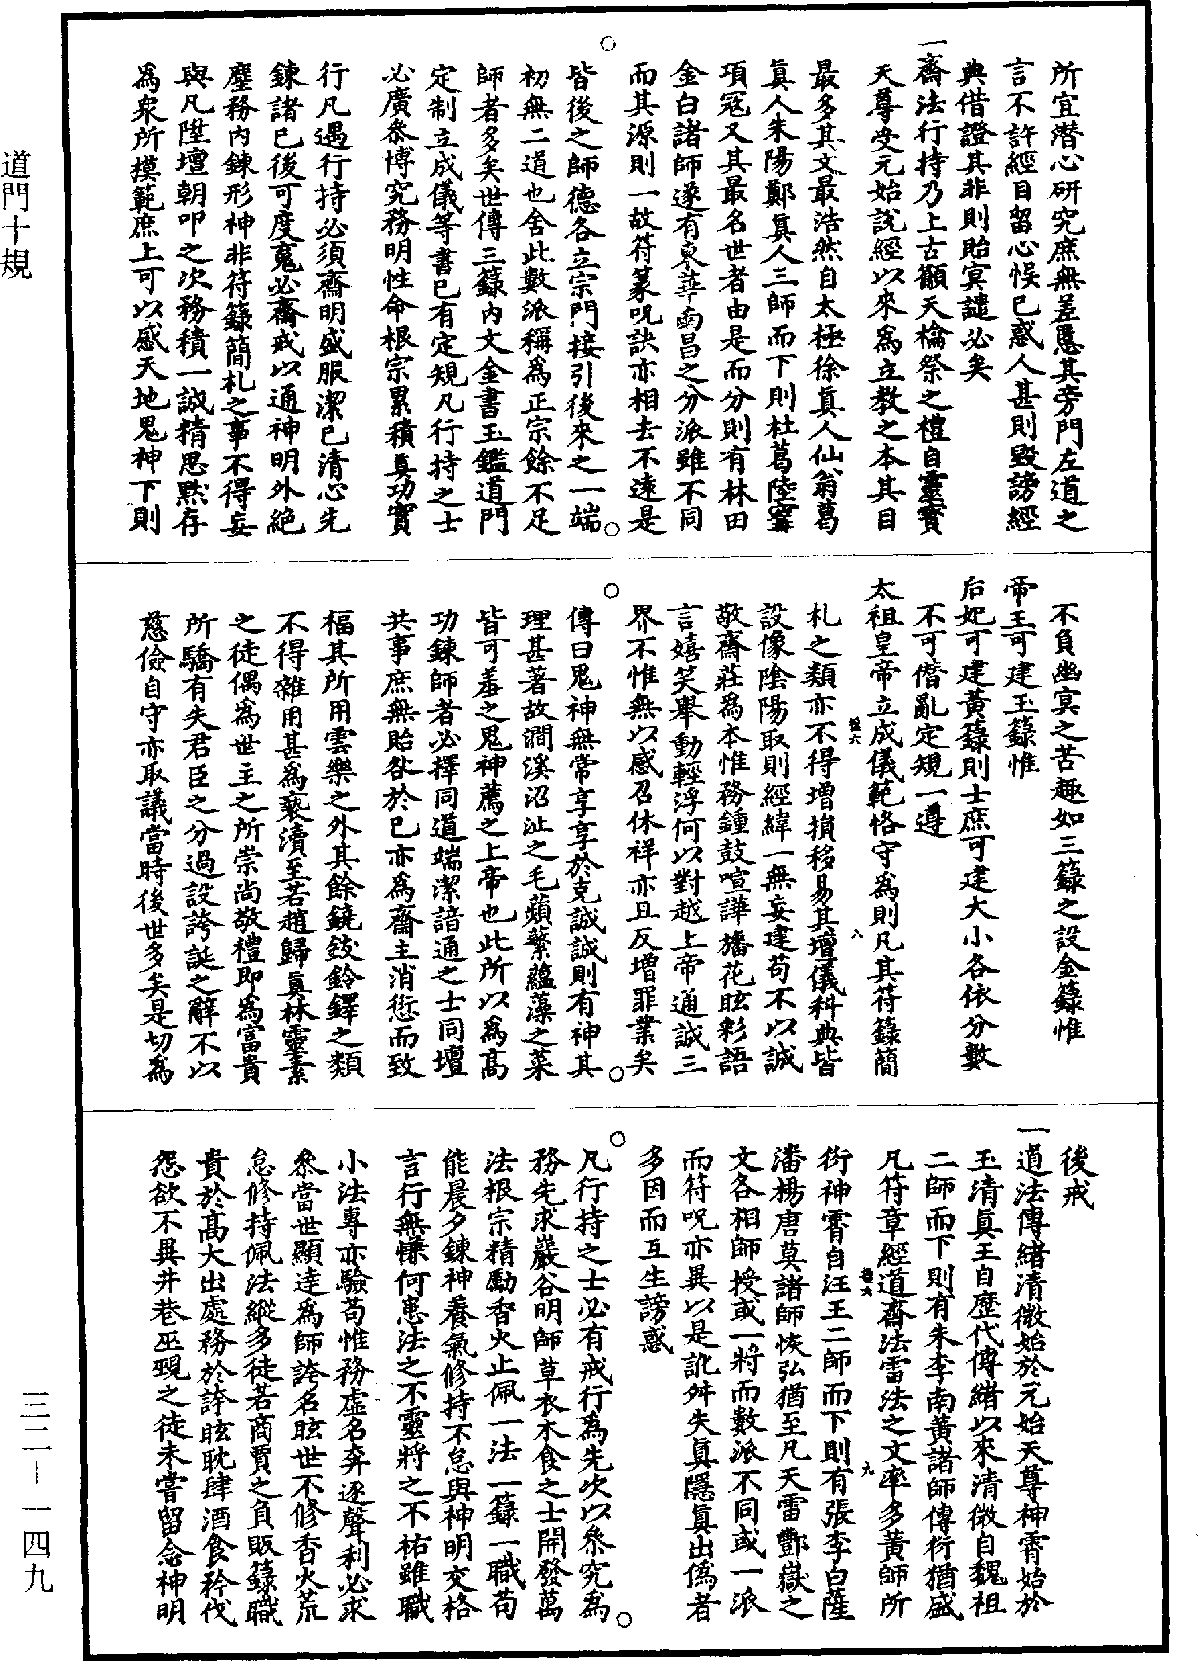 所宜潛心研究庶無差忒其旁門左道之
言不許經目留心悞己惑人甚則毀謗經
典借證其非則貽冥譴必矣
一齋法行持乃上古籲天檜祭之禮自靈寶
天尊受元始說經以來為立教之本其目
最多其文最浩然自太極徐真人仙翁葛
真人朱陽鄭真人三師而下則杜葛陸甯
項寇又其最名世者由是而分則有林田
金白諸師遂有東華南昌之分派雖不同
而其源則一故符篆呪訣亦相去不遠是
皆後之師德各立宗門接引後來之一端
初無二道也舍此數派稱為正宗餘不足
師者多矣世傳三籙內文金書玉鑑道門
定制立成儀等書已有定規凡行持之士
必廣參博究務明性命根宗累積真功實
行凡遇行持必須齋明盛服潔己清心先
鍊諸己後可度䰟必齋戒以通神明外絕
塵務內鍊形神非符籙簡札之事不得妄
與凡陞壇朝叩之次務積一誠精思默存
為衆所摸範庶上可以感天地鬼神下則
不負幽冥之苦趣如三籙之設金籙惟
帝王可建玉籙惟
后妃可建黃籙則士庶可建大小各依分數
不可僭亂定規一遵
太祖皇帝立成儀範恪守為則凡其符籙簡
札之類亦不得增損移易其壇儀科典皆
設像陰陽取則經緯一無妄建苟不以誠
敬齋莊為本惟務鍾鼓喧譁旛花眩彩語
言嬉笑舉動輕浮何以對越上帝通誠三
界不惟無以感召休祥亦且反增罪業矣
傳曰鬼神無常享享於克誠誠則有神其
理甚著故澗溪沼沚之毛蘋蘩蘊藻之菜
皆可羞之鬼神薦之上帝也此所以為高
功鍊師者必擇同道端潔諳通之士同壇
共事庶無貽咎於己亦為齋主消愆而致
福其所用雲樂之外其餘鐃鈸鈴鐸之類
不得雜用甚為褻瀆至若趙歸真林靈素
之徒偶為世主之所崇尚敬禮即為富貴
所驕有失君臣之分過設誇誕之辭不以
慈儉自守亦取議當時後世多矣是切為
後戒
一道法傳緒清微始於元始天尊神霄始於
玉清真王自歷代傳緒以來清微自魏祖
二師而下則有朱李南黃諸師傳衍猶盛
凡符章經道齋法雷法之文率多黃師所
衍神霄自汪王二師而下則有張李白薩
潘楊唐莫諸師恢弘猶至凡天雷酆嶽之
文各相師授或一將而數派不同或一派
而符呪亦異以是訛舛失真隱真出偽者
多因而互生謗惑
凡行持之士必有戒行為先次以參究為
務先求巖谷明師草衣木食之士開發萬
法根宗精勵香火止佩一法一籙一職苟
能晨夕鍊神養氣修持不怠與神明交格
言行無慊何患法之不靈將之不祐雖職
小法專亦驗苟惟務虛名奔逐聲利必求
參當世顯達為師誇名眩世不修香火荒
怠修持佩法縱多徒若商賈之負販籙職
貴於高大出處務於誇眩耽肆酒食矜伐
怨欲不異井巷巫覡之徒未嘗留念神明
道門十規
三二－一四九